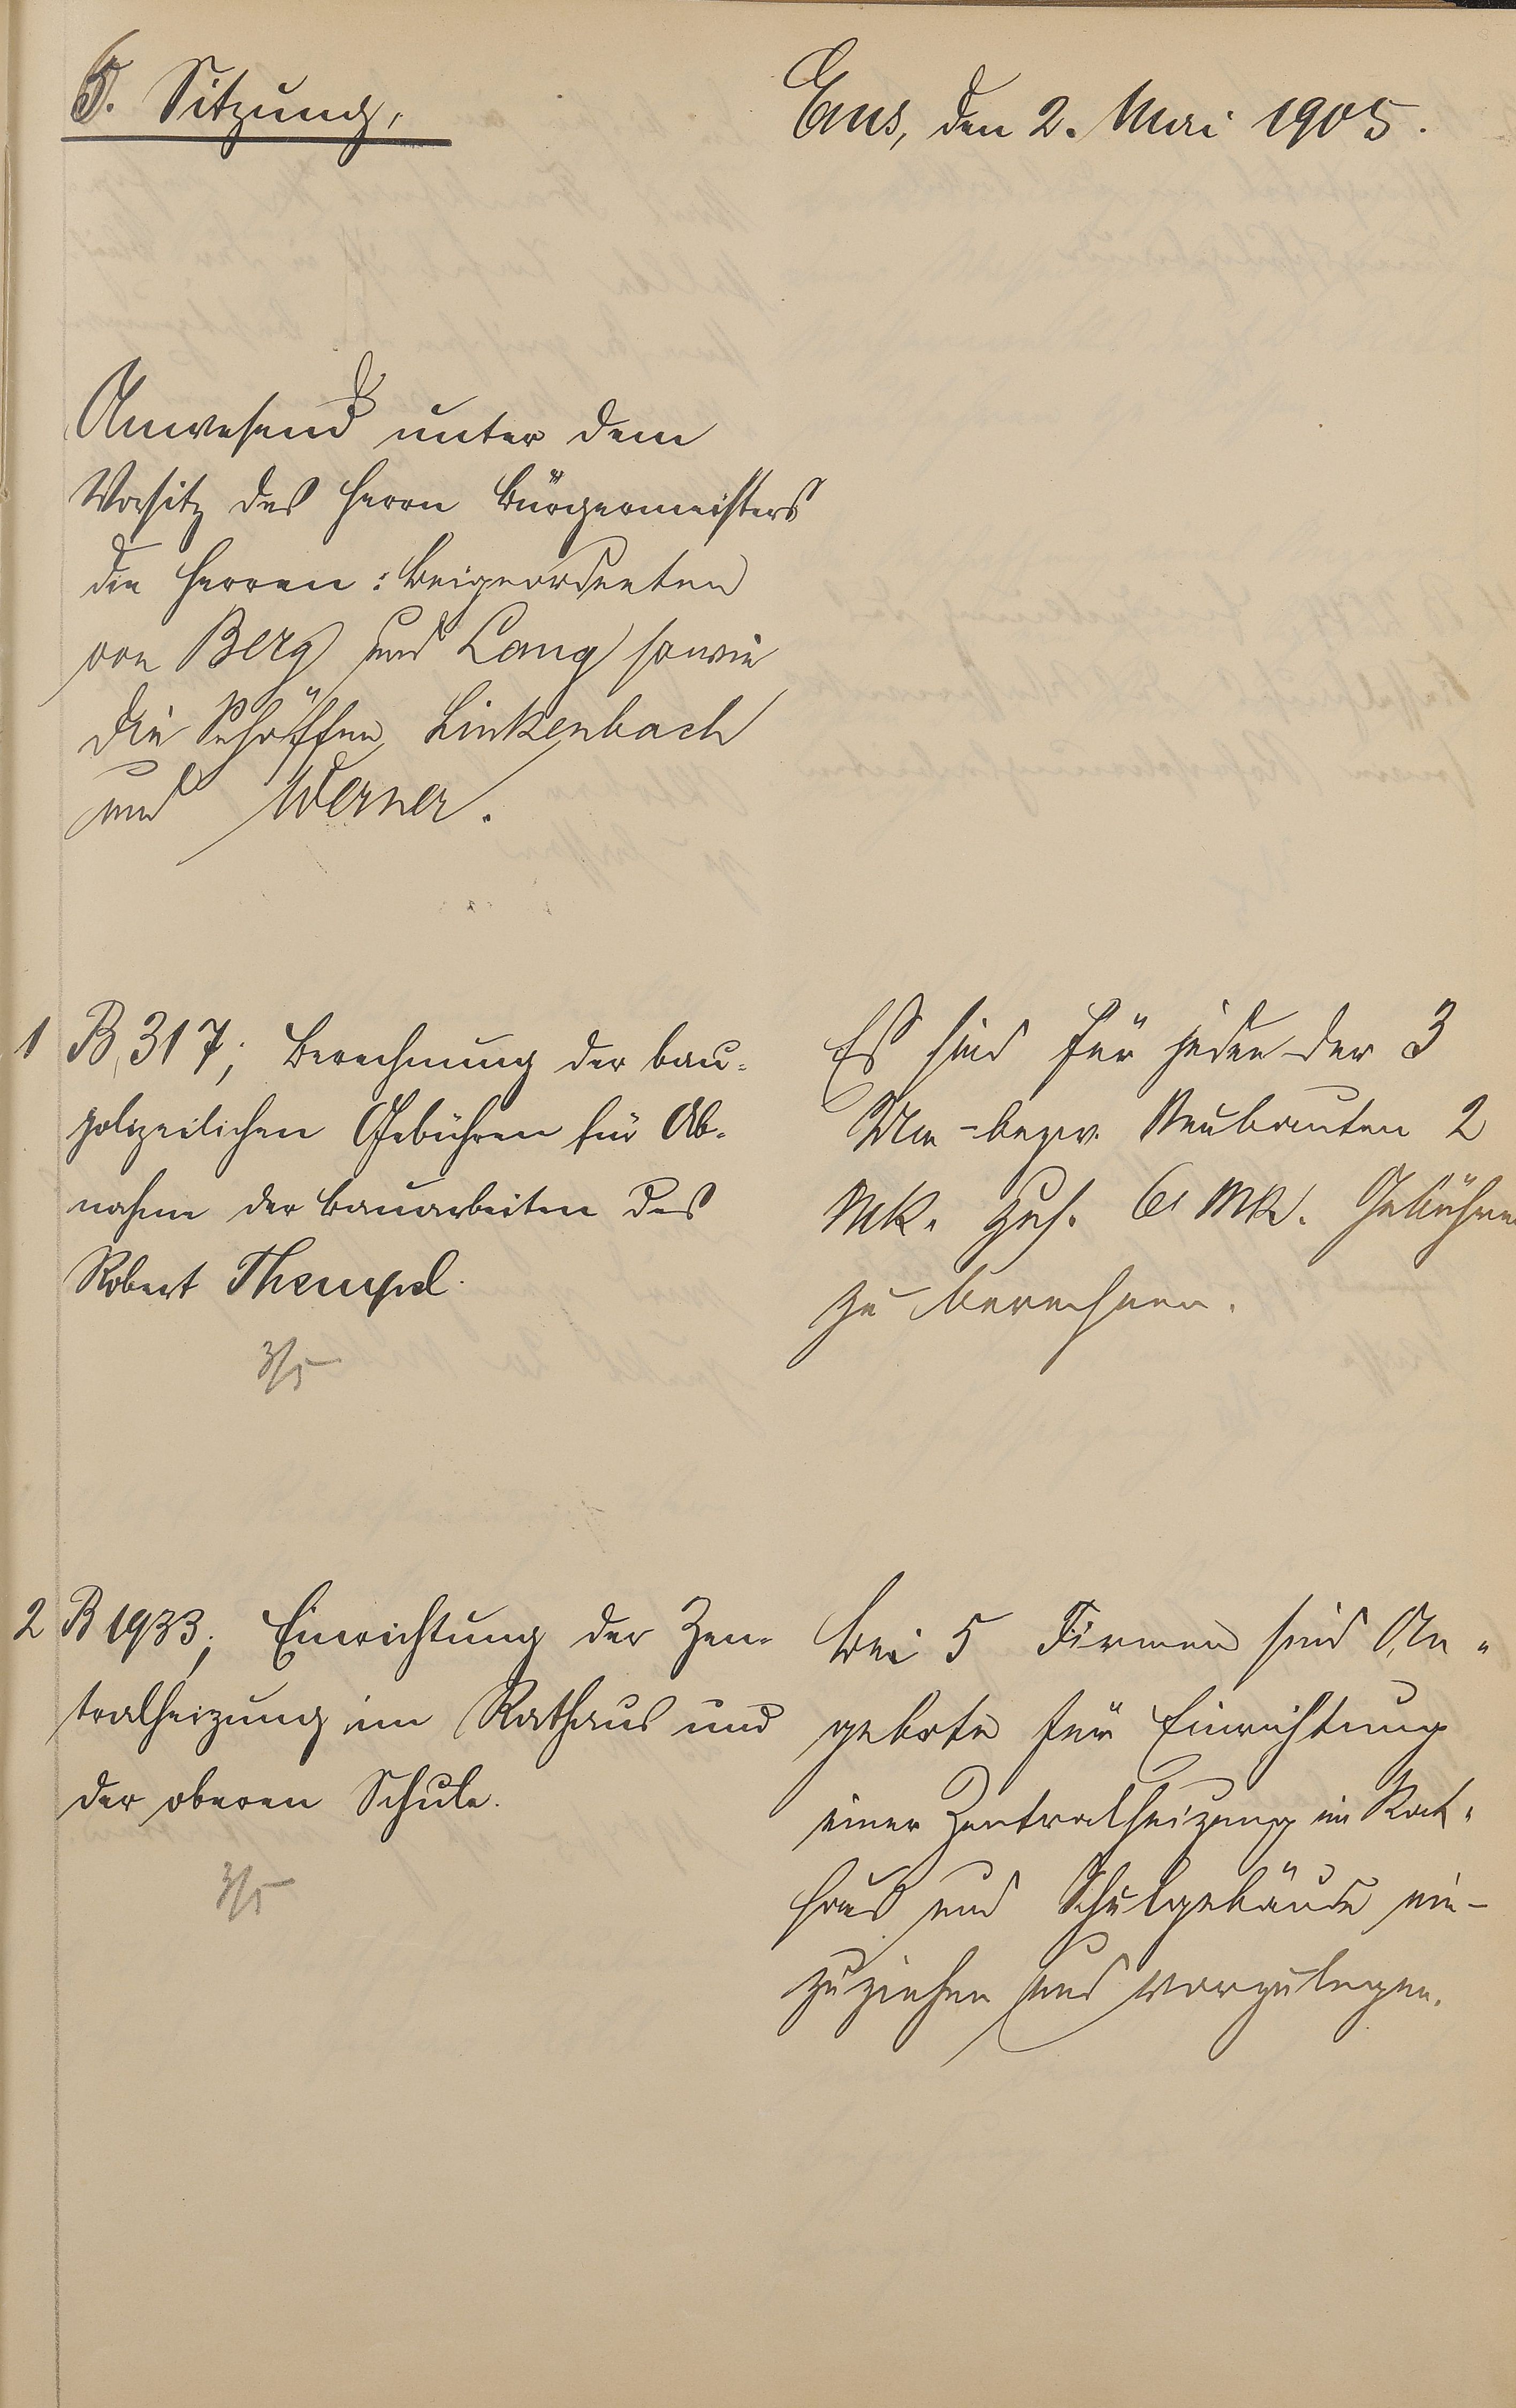 6. Sitzung,
Ems, den 2. Mai 1905.
Anwesend unter dem
Vorsitz des Herrn Bürgermeisters
die Herren: Beigeordneten
von Berg und Lang sowie
die Schöffen Linkenbach
und Werner.
1 B 317; Berechnung der bau-
polizeilichen Gebühren für Ab-
nahme der Bauarbeiten des
Robert Thempel.
3/5
Es sind für jeden der 3
Um- bezw. Neubauten 2
Mk. zus. 6 Mk. Gebühren
zu berechnen.
2 B 1933; Einrichtung der Zen-
tralheizung im Rathaus und
der oberen Schule.
3/5
Bei 5 Firmen sind An-
gebote für Einrichtung
einer Zentralheizung im Rat-
haus und Schulgebäude ein-
zuziehen und vorzulegen.